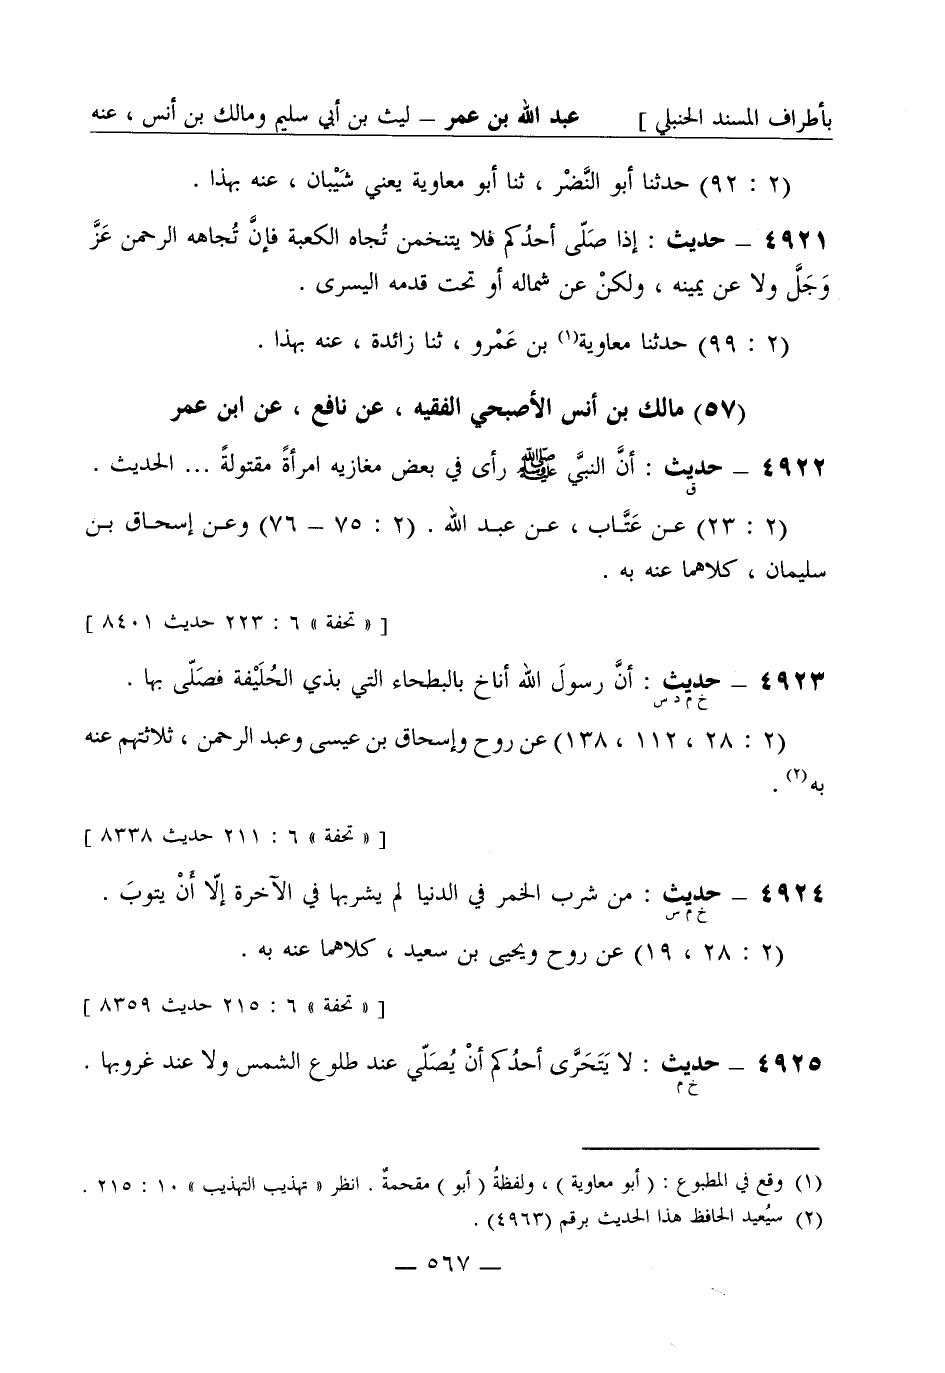 بأطراف المسند الحنبلي ] عبد الله بن عمر – ليث بن أبي سليم ومالك بن أنس ، عنه
(٢ : ٩٢) حدثنا أبو النَّضْر ، ثنا أبو معاوية يعني شَيْبان ، عنه بهذا .
٤٩٢١ – حديث : إذا صَلّى أحدُكم فلا يتنخمن تُجاه الكعبة فإنَّ تُجاهه الرحمن عَزَّ
وَجَلَّ ولا عن يمينه ، ولكنْ عن شماله أو تحت قدمه اليسرى .
(٢ : ٩٩) حدثنا معاوية(١) بن عَمْرو ، ثنا زائدة ، عنه بهذا .
(٥٧) مالك بن أنس الأصبحي الفقيه ، عن نافع ، عن ابن عمر
٤٩٢٢ – حديث : أنَّ النبيَّ ﷺ رأى في بعض مغازيه امرأةً مقتولةً ... الحديث .
ق
(٢ : ٢٣) عن عَتَّاب ، عن عبد الله . (٢ : ٧٥ – ٧٦) وعن إسحاق بن
سليمان ، كلاهما عنه به .
[ « تحفة » ٦ : ٢٢٣ حديث ٨٤٠١ ]
٤٩٢٣ – حديث : أنَّ رسولَ الله أناخ بالبطحاء التي بذي الحُلَيْفة فصَلّى بها .
خ م د س
(٢ : ٢٨ ، ١١٢ ، ١٣٨) عن روح وإسحاق بن عيسى وعبد الرحمن ، ثلاثتهم عنه
به(٢) .
[ « تحفة » ٦ : ٢١١ حديث ٨٣٣٨ ]
٤٩٢٤ – حديث : من شرب الخمر في الدنيا لم يشربها في الآخرة إلّا أَنْ يتوبَ .
خ م س
(٢ : ٢٨ ، ١٩) عن روح ويحيى بن سعيد ، كلاهما عنه به .
[ « تحفة » ٦ : ٢١٥ حديث ٨٣٥٩ ]
٤٩٢٥ – حديث : لا يَتَحَرَّى أحدُكم أنْ يُصَلّي عند طلوع الشمس ولا عند غروبها .
خ م
(١) وقع في المطبوع : ( أبو معاوية ) ، ولفظةُ ( أبو ) مقحمةٌ . انظر « تهذيب التهذيب » ١٠ : ٢١٥ .
(٢) سيُعيد الحافظ هذا الحديث برقم (٤٩٦٣) .
— ٥٦٧ —